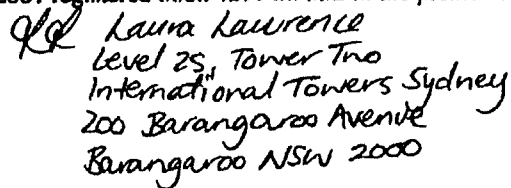 Laura Lawrence
Level 25, Tower Two
International Towers Sydney
200 Barangaroo Avenue
Barangaroo NSW 2000